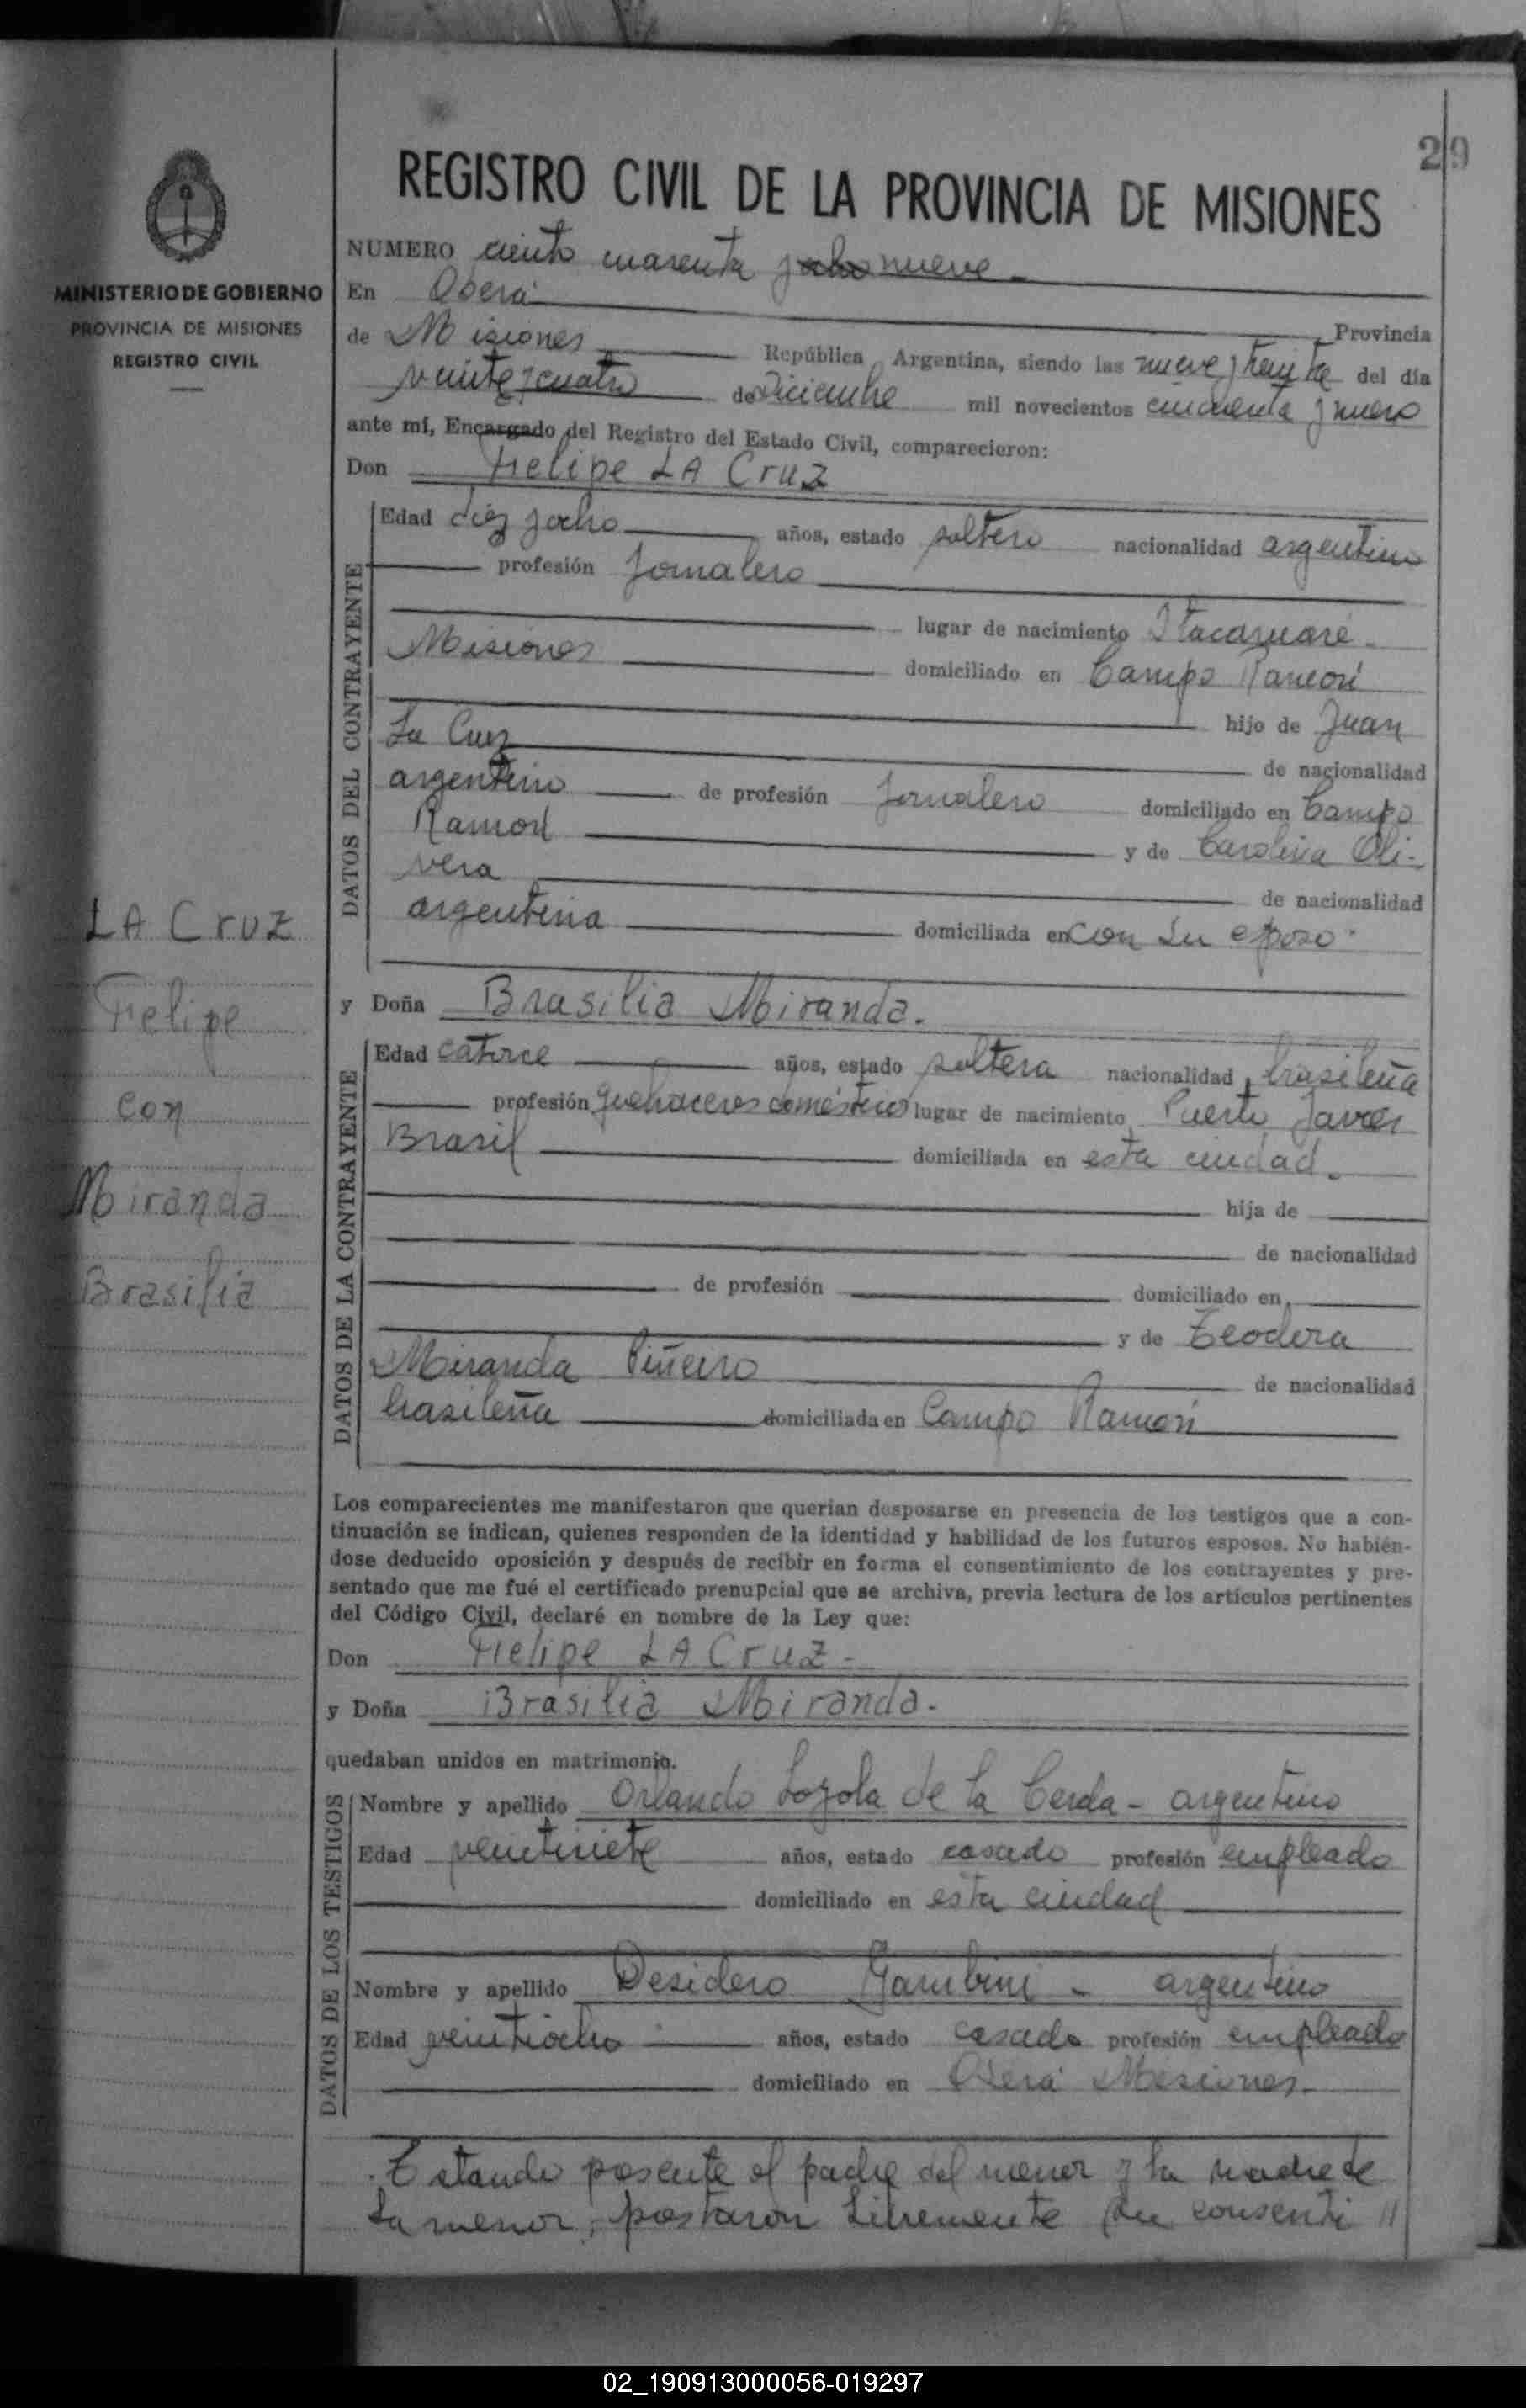 29
REGISTRO CIVIL DE LA PROVINCIA DE MISIONES
MINISTERIO DE GOBIERNO
PROVINCIA DE MISIONES
REGISTRO CIVIL
NUMERO ciento cuarenta y ocho nueve
En Oberá
Provincia
de Misiones República Argentina, siendo las nueve y treinta del día
veinte y cuatro de Diciembre mil novecientos cincuenta y nueve
ante mí, Encargado del Registro del Estado Civil, comparecieron:
Don Felipe LA Cruz
DATOS DEL CONTRAYENTE
Edad diez y ocho años, estado soltero nacionalidad argentino
profesión Jornalero
lugar de nacimiento Itacaruaré
Misiones domiciliado en Campo Ramón
hijo de Juan
La Cruz
de nacionalidad
argentino de profesión Jornalero domiciliado en Campo
Ramón y de Carolina Oli-
vera
de nacionalidad
argentina domiciliada en con su esposo.
LA Cruz
Felipe
con
Miranda
Brasilia
y Doña Brasilia Miranda.
DATOS DE LA CONTRAYENTE
Edad catorce años, estado soltera nacionalidad brasileña
profesión quehaceres domésticos lugar de nacimiento Puerto Javier
Brasil domiciliada en esta ciudad.
hija de
de nacionalidad
de profesión domiciliado en
y de Teodora
Miranda Piñeiro
de nacionalidad
brasileña domiciliada en Campo Ramón
Los comparecientes me manifestaron que querian desposarse en presencia de los testigos que a con-
tinuación se indican, quienes responden de la identidad y habilidad de los futuros esposos. No habién-
dose deducido oposición y después de recibir en forma el consentimiento de los contrayentes y pre-
sentado que me fué el certificado prenupcial que se archiva, previa lectura de los artículos pertinentes
del Código Civil, declaré en nombre de la Ley que:
Don Felipe LA Cruz-
y Doña Brasilia Miranda-
quedaban unidos en matrimonio.
DATOS DE LOS TESTIGOS
Nombre y apellido Orlando Loyola de la Cerda - argentino
Edad veintisiete años, estado casado profesión empleado
domiciliado en esta ciudad
Nombre y apellido Desidero Gambini - argentino
Edad veintiocho años, estado casado profesión empleado
domiciliado en Oberá Misiones-
Estando presente el padre del menor y la madre de
la menor, prestaron libremente su consenti //
02_190913000056-019297